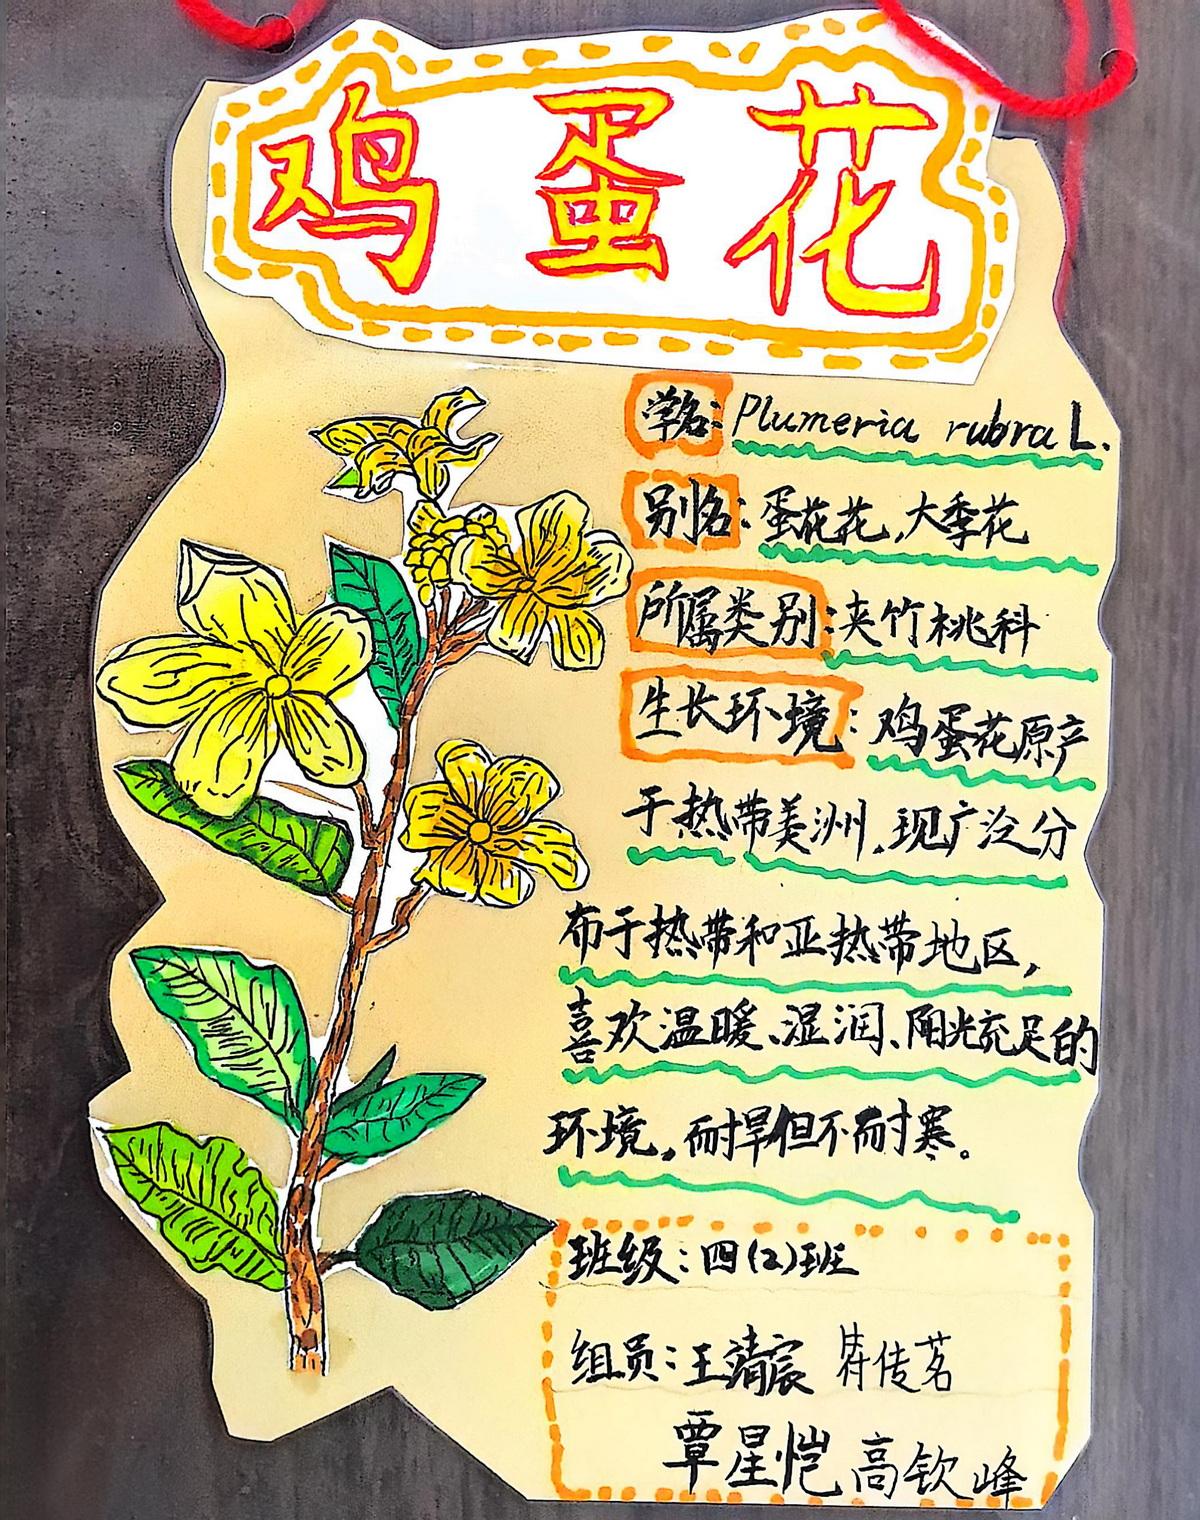 鸡蛋花
学名：Plumeria rubra L.
别名：蛋花花，大季花
所属类别：夹竹桃科
生长环境：鸡蛋花原产
于热带美洲，现广泛分
布于热带和亚热带地区，
喜欢温暖、湿润、阳光充足的
环境，耐旱但不耐寒。
班级：四(2)班
组员：王清宸 符传茗
覃星恺 高钦峰